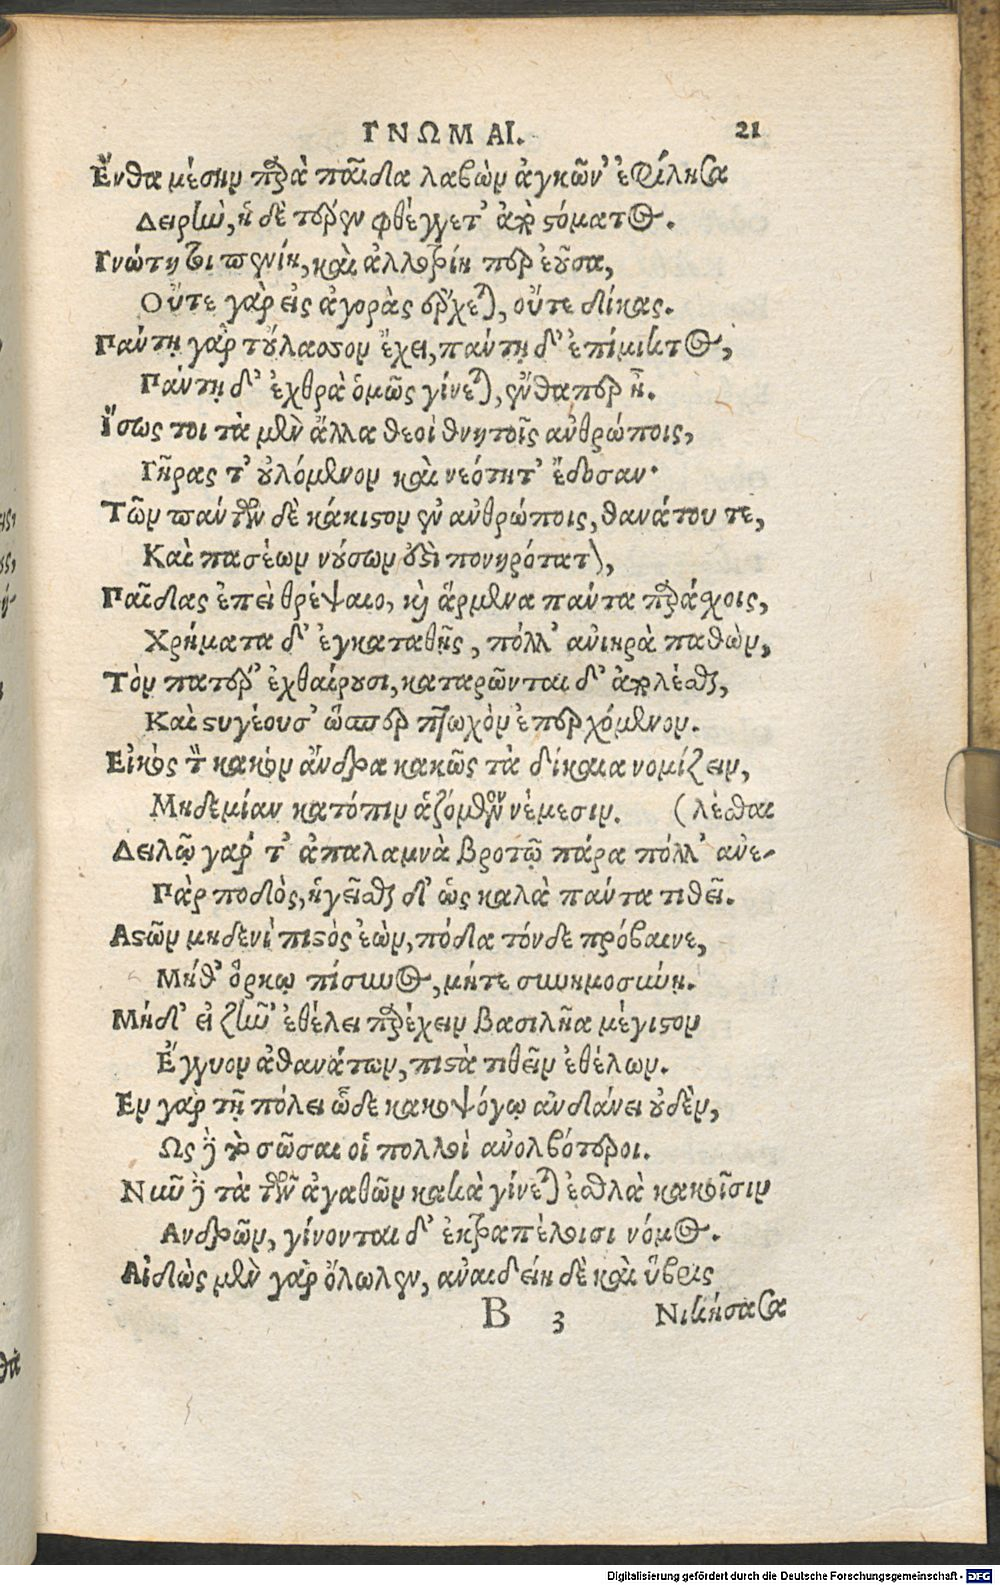 ΓΝΩΜΑΙ. 21
Ἔνθα μέσην πρὰ παῖδα λαβὼν ἀγκῶν' ἐφίλησα
Δειρὴν, ἡ δὲ τέρεν φθέγγετ' ἀπὸ στόματος.
Γνώτη τοι πενίη, καὶ ἀλλοτρίη περ ἐοῦσα,
Οὔτε γὰρ εἰς ἀγορὰς ἔρχεται, οὔτε δίκας.
Πάντῃ γὰρ τοὔλασσον ἔχει, πάντῃ δ' ἐπίμικτος,
Πάντῃ δ' ἐχθρὰ ὁμῶς γίνεται, ἔνθα περ ᾖ.
Ἴσως τοι τὰ μὲν ἄλλα θεοὶ θνητοῖς ἀνθρώποις,
Γῆρας τ' οὐλόμενον καὶ νεότητ' ἔδοσαν·
Τῶν πάντων δὲ κάκιστον ἐν ἀνθρώποις, θανάτου τε,
Καὶ πασέων νούσων ἐστὶ πονηρότατον,
Παῖδας ἐπεὶ θρέψαιο, καὶ ἄρμενα πάντα παράσχοις,
Χρήματα δ' ἐγκαταθῇς, πόλλ' ἀνιηρὰ παθὼν,
Τὸν πατέρ' ἐχθαίρουσι, καταρῶνται δ' ἀπολέσθαι,
Καὶ στυγέουσ' ὥσπερ πτωχὸν ἐπερχόμενον.
Εἰκὸς τὸν κακὸν ἄνδρα κακῶς τὰ δίκαια νομίζειν,
Μηδεμίαν κατόπιν ἁζόμενον νέμεσιν. (λέσθαι
Δειλῷ γάρ τ' ἀπαλαμνὰ βροτῷ πάρα πόλλ' ἀνε-
Πὰρ ποδὸς, ἡγεῖσθαι δ' ὡς καλὰ πάντα τιθεῖ.
Ἀστῶν μηδενὶ πιστὸς ἐὼν, πόδα τόνδε πρόβαινε,
Μήθ' ὅρκῳ πίσυνος, μήτε συνημοσύνῃ.
Μήδ' εἰ ζῆν' ἐθέλει παρέχειν βασιλῆα μέγιστον
Ἔγγυον ἀθανάτων, πιστὰ τιθεῖν ἐθέλων.
Ἐν γὰρ τῇ πόλει ὧδε κακοψόγῳ ἁνδάνει οὐδὲν,
Ὡς δὲ τὸ σῶσαι οἱ πολλοὶ ἀνολβότεροι.
Νῦν δὲ τὰ τῶν ἀγαθῶν κακὰ γίνεται ἐσθλὰ κακοῖσιν
Ἀνδρῶν, γίνονται δ' ἐκτραπέλοισι νόμοις.
Αἰδὼς μὲν γὰρ ὄλωλεν, ἀναιδείη δὲ καὶ ὕβρις
B 3 Νικήσασα
Digitalisierung gefördert durch die Deutsche Forschungsgemeinschaft - DFG